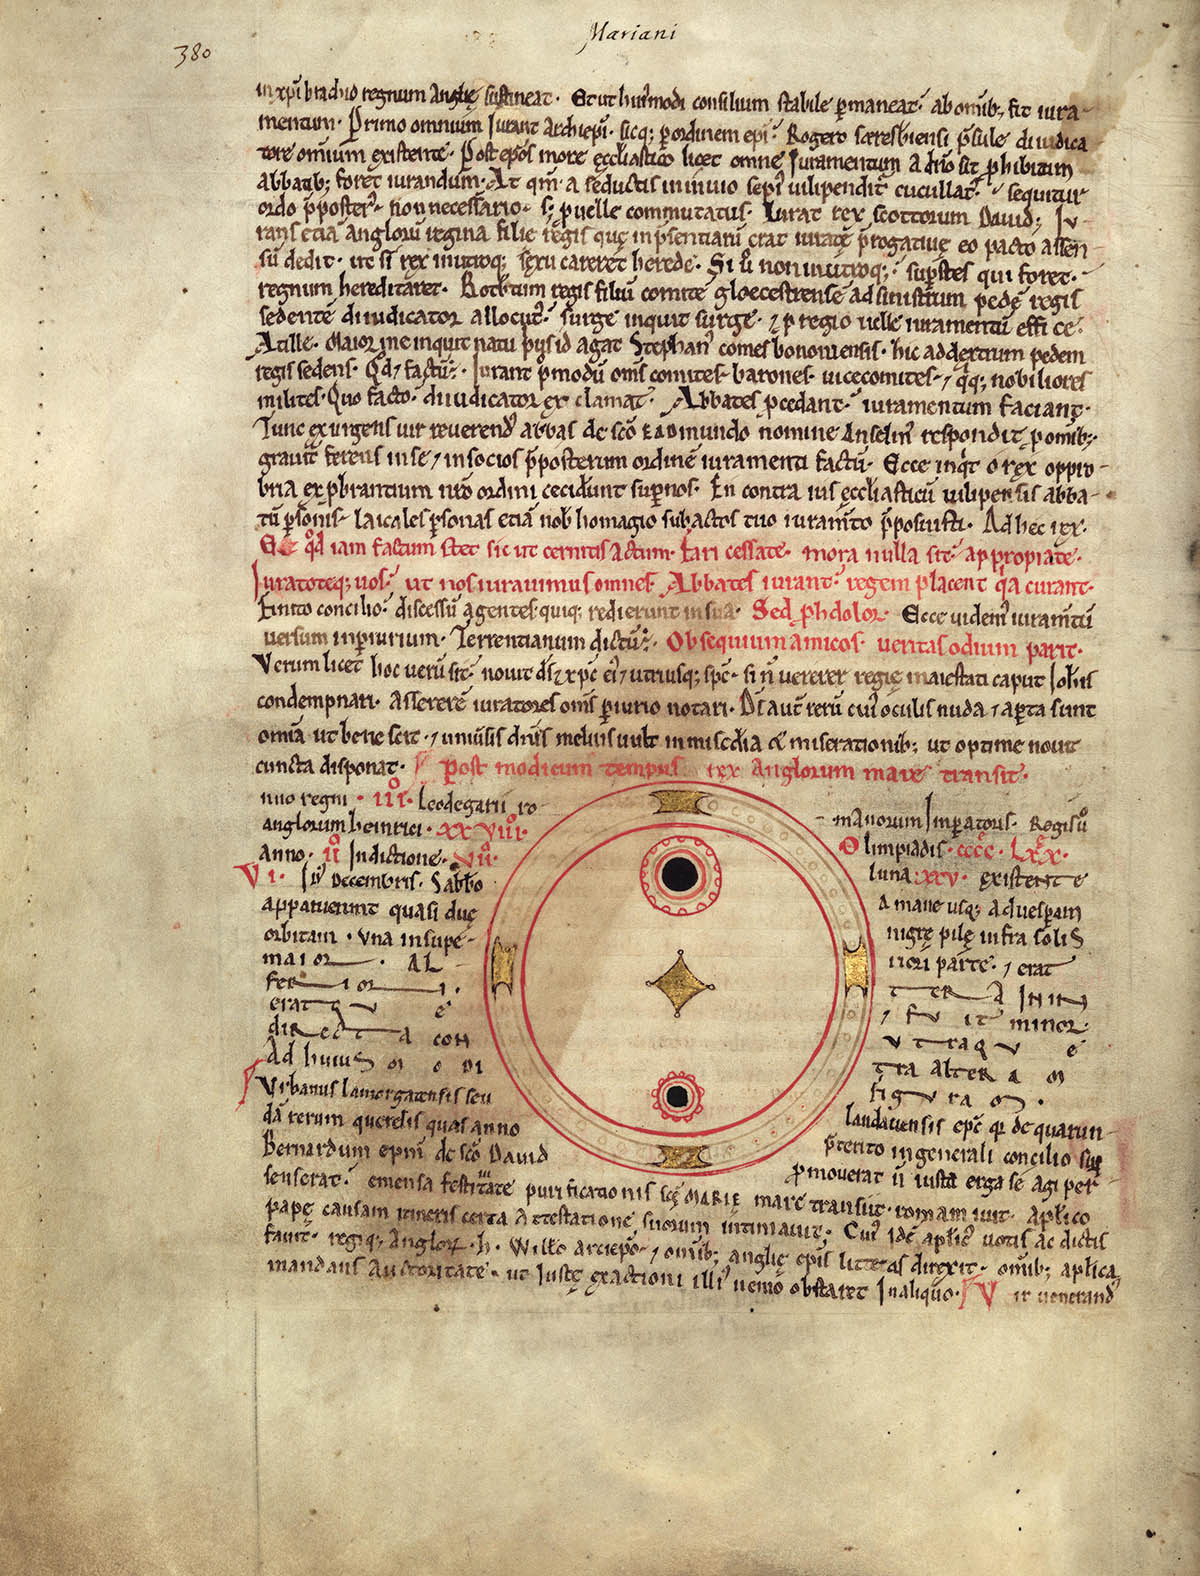 380
Mariani
in xp̄i brachio regnum Anglię sustineat. Et ut hui'modi consilium stabile p̄maneat. ab omib; fit iura-
mentum. Primo omnium iurant archiepi. sicq; p ordinem epi. Rogero særesbiensi p̄sule diiudica
tore omnium existente. Post ep̄os more ęccl̄iastico licet omne iuramentum a dn̄o sit phibitum
abbatib; foret iurandum. At qm̄ a seductis in inuio sepi' uilipendit' cucullat'. sequitur
ordo p̄poster'. non necessario. s; p uelle commutatus. Iurat rex scottorum Dauid; Iu
rans etiā anglorū regina filie regis quę in p̄sentiarū erat iuratę p̄rogatiuę eo pacto assen
sū dedit. ut si rex in utroq; sexu careret herede. Si ū non in utroq; supstes qui foret.
regnum hereditaret. Rotbtum regis filiū comitē gloecestrensē ad sinistrum pedē regis
sedentē diiudicator allocut'. surge inquit surge. & p regio uelle iuramentū effice.
At ille. Maior me inquit natu p̄us id agat Stephan' comes bononiensis. hic ad dextrum pedem
regis sedens. Qd & factū. Iurant p̄modū om̄s comites. barones. uicecomites. & q̨q; nobiliores
milites. Quo facto. diiudicator exclamat. Abbates pcedant. iuramentum faciant.
Tunc exurgens uir reuerend' abbas de sc̄o eadmundo nomine Anselm' respondit p omib;.
grauit' ferens in se & in socios p̄posterum ordinē iuramenti factū. Ecce inqt o rex oppro-
bria exprobrantium nr̄o ordini ceciderunt sup nos. En contra ius ęccl̄iasticū uilipensis abba-
tū psonis. laicales psonas etiā nob homagio subactos tuo iuram̄to p̄posuisti. Ad hec rex.
Et qd iam factum stet sic ut cernitis actum. Fari cessate. mora nulla sit. appropiate.
Iuratoteq; uos. ut nos iurauimus omnes. Abbates iurant. regem placent qa curant.
Finito concilio. discessū agentes quiq; redierunt in sua. Sed ph dolor. Ecce uidem' iuram̄tū
uersum in piurium. Terrentianum dictū. Obsequium amicos. ueritas odium parit.
Verum licet hoc uerū sit. nouit ds̄ & xp̄c ei' & utriusq; sp̄c. si n̄ uererer regię maiestati caput Ioh̄is
condempnari. assererē iuratores om̄s piurio notari. Ds̄ aut' rerū cui' oculis nuda & apta sunt
omīa ut bene scit. & uniu'sis dn̄is melius uult in miscd̄ia & miserationib; ut optime nouit
cuncta disponat. Post modicum tempus rex Anglorum mare transit.
nno regni .iii. Leodegarii ro- manorum Imperatoris. Regis ū
anglorum heinrici. xxviii. Olimpiadis. cccc. lxx.
Anno. ii. Indictione. vii. luna. xxv. existente
Vi. Id' Decembris. Sabb̄o a mane usq; ad uesperam
apparuerunt quasi duę nigrę pilę infra solis
orbitam. una in supe- riori parte. & erat
maior. Al tera in in
feriori. & fuit minor.
eratque utraque
directa con tra alteram
Ad huius modi figuram.
Vrbanus lamorgatensis seu landauensis ep̄c qr de quarun-
dā rerum querelis quas anno p̄terito in generali concilio sup
Bernardum ep̄m de sc̄o Dauid pmouerat n̄ iusta erga se agi per
senserat. emensa festiuitate purificationis scę MARIE mare transiit. romam iuit. aplico
papę causam itineris certa attestatione suorum intimauit. Cui' idē aplic' uotis ac dictis
fauit. regiq; Anglorū .h. Will'o arciep̄o. & omib; anglię ep̄is litteras direxit. omib; aplica
mandans auctoritate. ut iustę exactioni illi' nemo obstaret in aliquo. Vir uenerand'